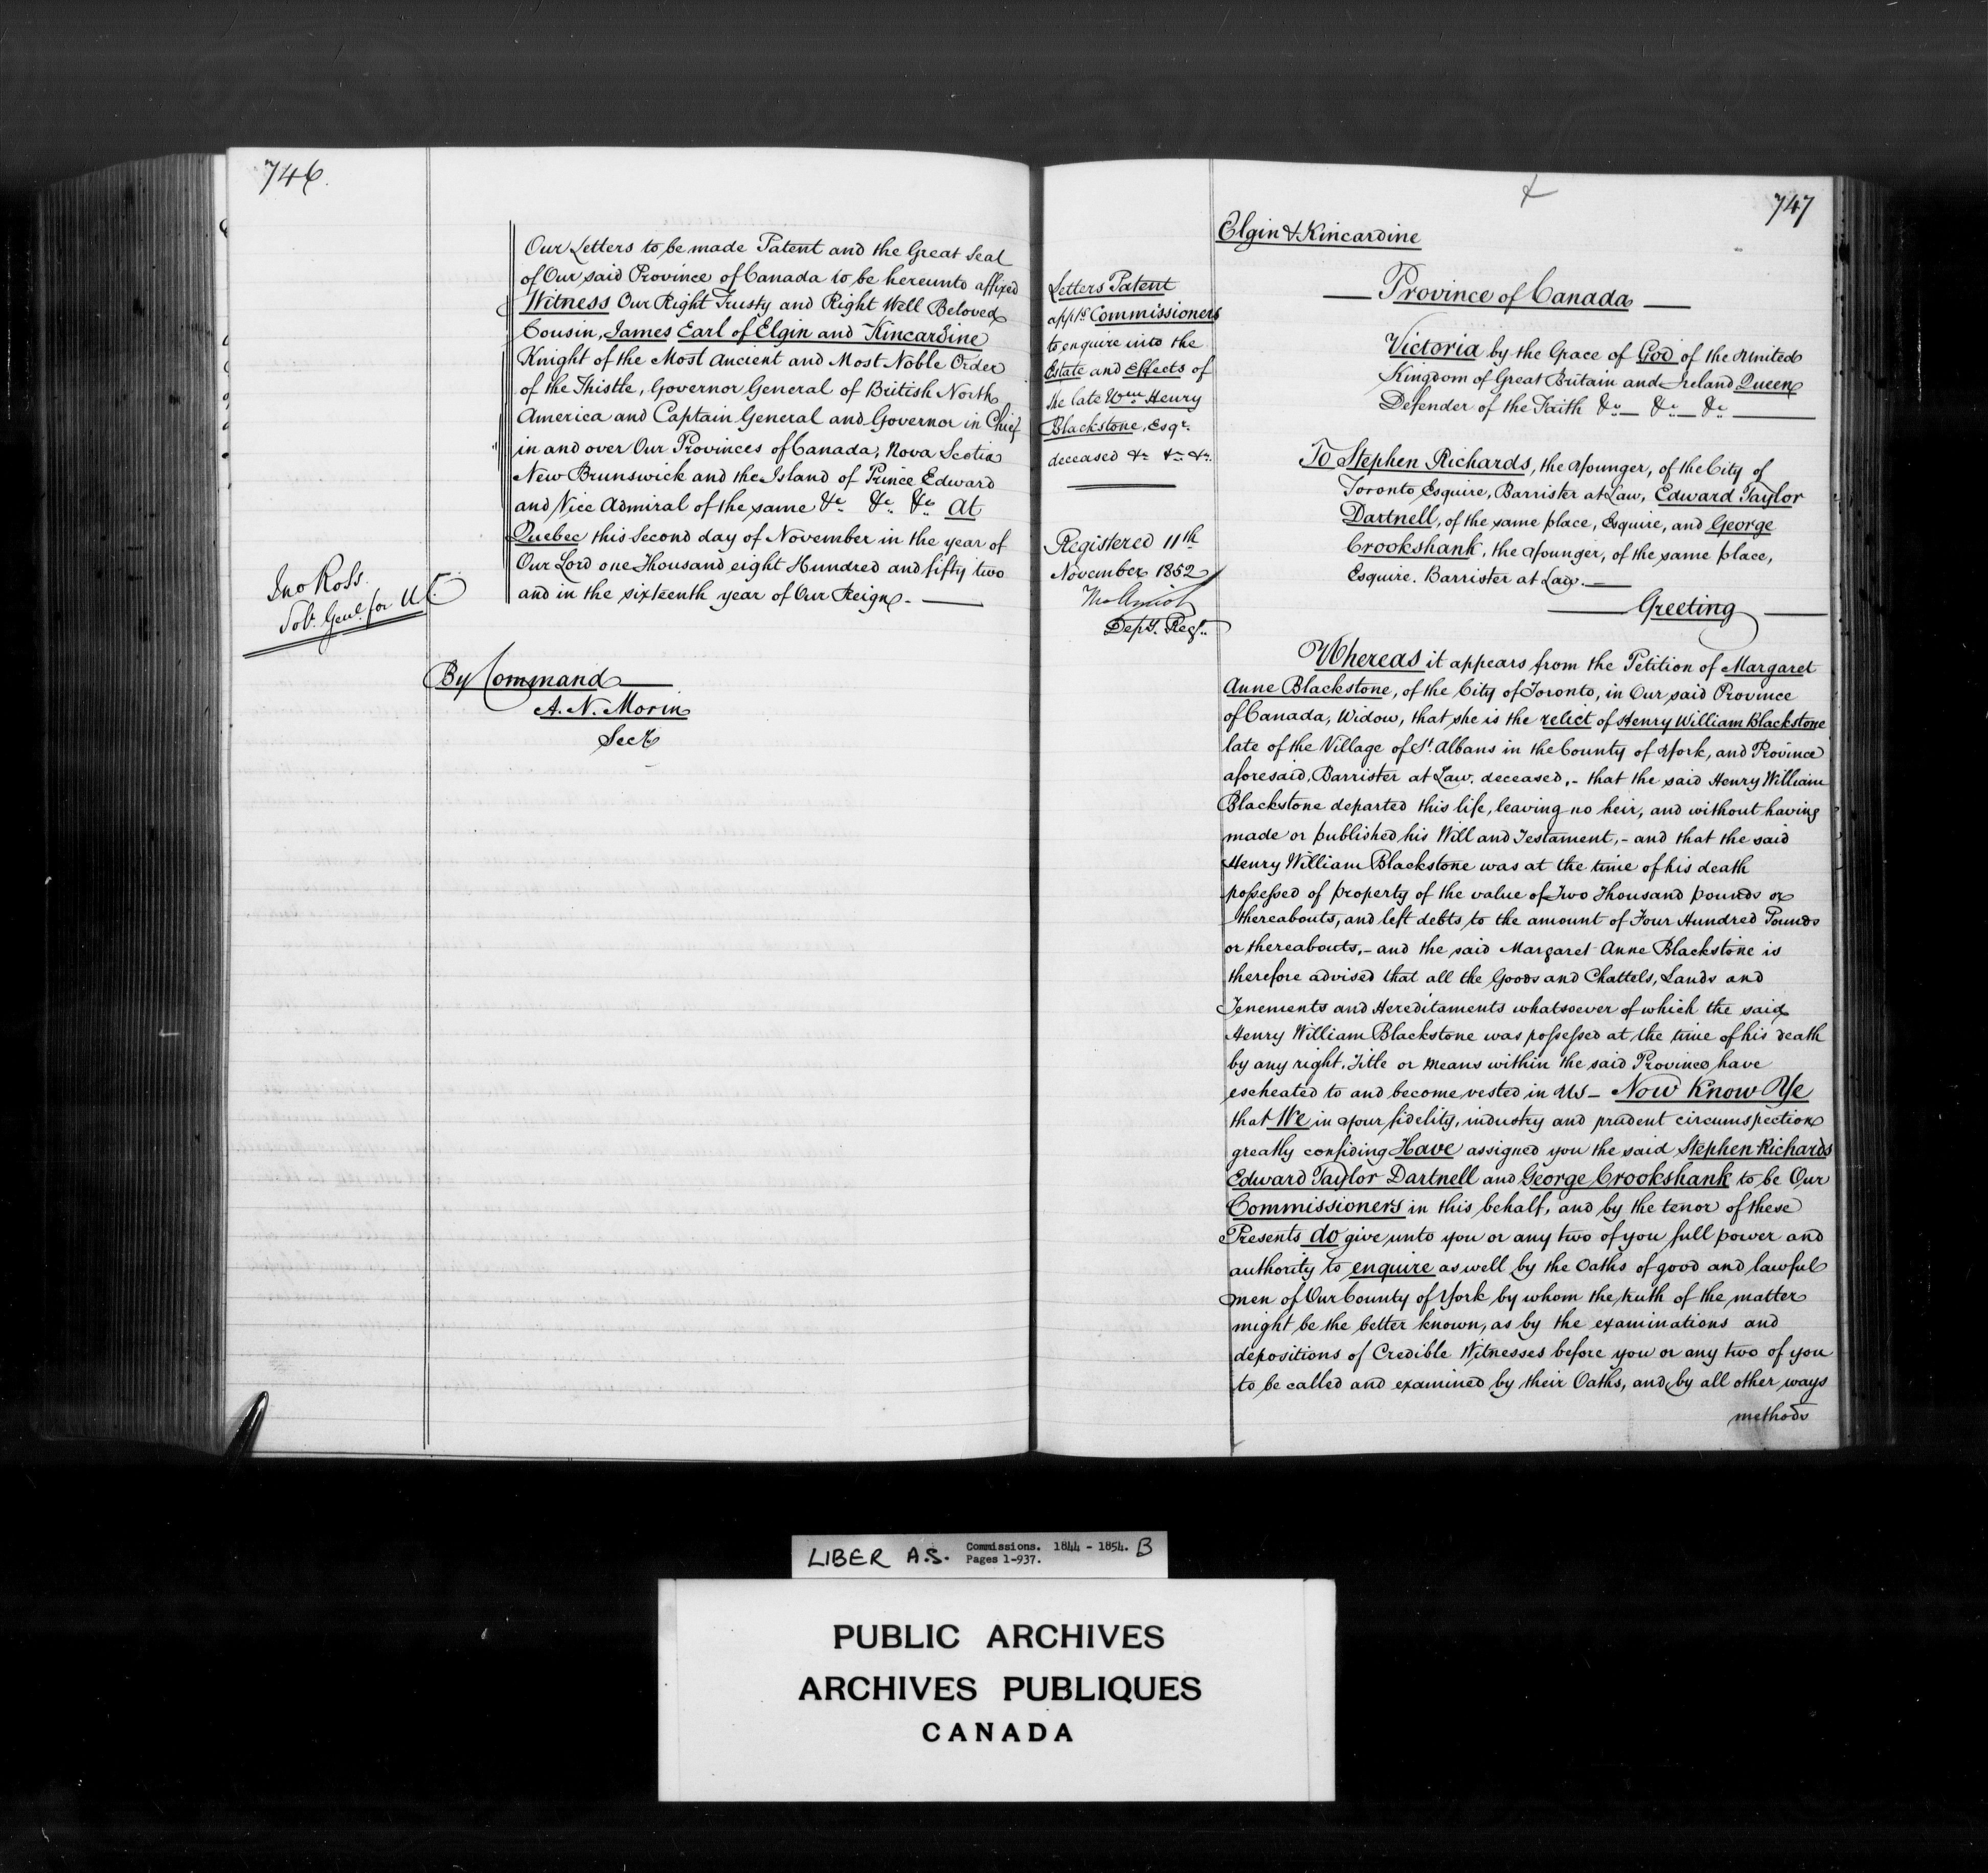 746.
Our Letters to be made Patent and the Great Seal
of Our said Province of Canada to be hereunto affixed
Witness Our Right Trusty and Right Well Beloved
Cousin, James Earl of Elgin and Kincardine
Knight of the Most Ancient and Most Noble Order
of the Thistle, Governor General of British North
America and Captain General and Governor in Chief
in and over Our Provinces of Canada, Nova Scotia
New Brunswick and the Island of Prince Edward
and Vice Admiral of the same &c &c &c At
Quebec this Second day of November in the year of
Our Lord one Thousand eight Hundred and fifty two
and in the sixteenth year of Our Reign. —
Jno Ross.
Sol. Genl. for U.C.
By Command
A. N. Morin
Secy
747
Elgin & Kincardine
Letters Patent
appts Commissioners
to enquire into the
Estate and Effects of
the late Wm Henry
Blackstone, Esqr.
deceased &c &c &c.
Registered 11th
November 1852
Depy. Regr.
— Province of Canada —
Victoria by the Grace of God of the United
Kingdom of Great Britain and Ireland Queen
Defender of the Faith &c — &c — &c —
To Stephen Richards, the Younger, of the City of
Toronto Esquire, Barrister at Law, Edward Taylor
Dartnell, of the same place, Esquire, and George
Crookshank, the Younger, of the same place,
Esquire. Barrister at Law. —
— Greeting —
Whereas it appears from the Petition of Margaret
Anne Blackstone, of the City of Toronto, in Our said Province
of Canada, Widow, that she is the relict of Henry William Blackstone
late of the Village of St. Albans in the County of York, and Province
aforesaid, Barrister at Law. deceased, - that the said Henry William
Blackstone departed this life, leaving no heir, and without having
made or published his Will and Testament, - and that the said
Henry William Blackstone was at the time of his death
possessed of property of the value of Two Thousand pounds or
thereabouts, and left debts to the amount of Four Hundred Pounds
or thereabouts, - and the said Margaret Anne Blackstone is
therefore advised that all the Goods and Chattels, Lands and
Tenements and Hereditaments whatsoever of which the said
Henry William Blackstone was possessed at the time of his death
by any right, Title or means within the said Province have
escheated to and become vested in Us - Now Know Ye
that We in your fidelity, industry and prudent circumspection
greatly confiding Have assigned you the said Stephen Richards
Edward Taylor Dartnell and George Crookshank to be Our
Commissioners in this behalf, and by the tenor of these
Presents do give unto you or any two of you full power and
authority to enquire as well by the Oaths of good and lawful
men of Our County of York by whom the truth of the matter
might be the better known, as by the examinations and
depositions of Credible Witnesses before you or any two of you
to be called and examined by their Oaths, and by all other ways
methods
LIBER A.S. Commissions. 1844 - 1854. B
Pages 1-937.
PUBLIC ARCHIVES
ARCHIVES PUBLIQUES
CANADA